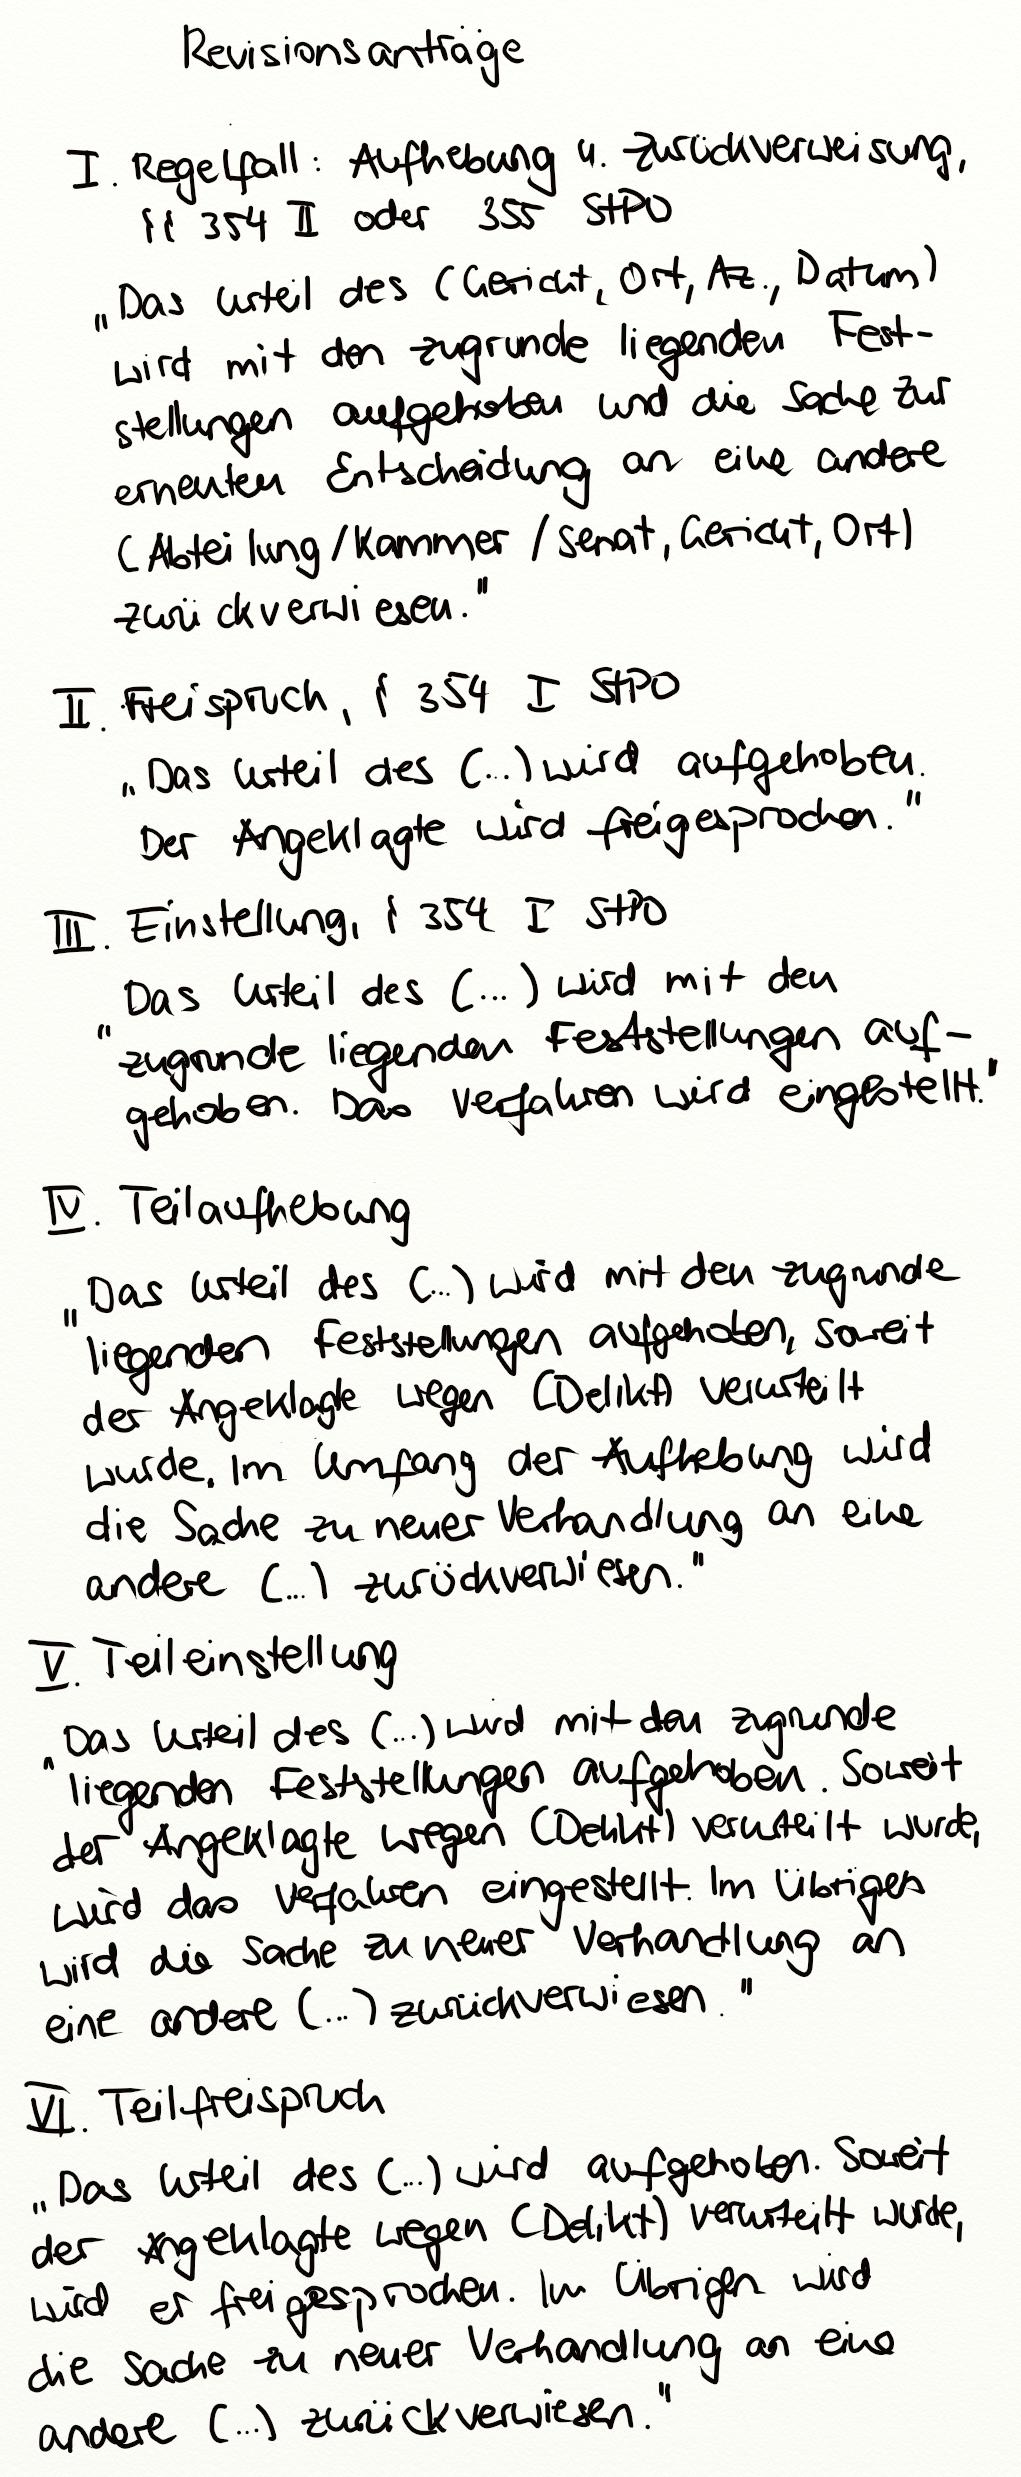 Revisionsanträge
I. Regelfall: Aufhebung u. Zurückverweisung,
§§ 354 II oder 355 StPO
„Das Urteil des (Gericht, Ort, Az., Datum)
wird mit den zugrunde liegenden Fest-
stellungen aufgehoben und die Sache zur
erneuten Entscheidung an eine andere
(Abteilung/Kammer/Senat, Gericht, Ort)
zurückverwiesen."
II. Freispruch, § 354 I StPO
„Das Urteil des (...) wird aufgehoben.
Der Angeklagte wird freigesprochen."
III. Einstellung, § 354 I StPO
"Das Urteil des (...) wird mit den
zugrunde liegenden Feststellungen auf-
gehoben. Das Verfahren wird eingestellt."
IV. Teilaufhebung
„Das Urteil des (...) wird mit den zugrunde
liegenden Feststellungen aufgehoben, soweit
der Angeklagte wegen (Delikt) verurteilt
wurde. Im Umfang der Aufhebung wird
die Sache zu neuer Verhandlung an eine
andere (...) zurückverwiesen."
V. Teileinstellung
"Das Urteil des (...) wird mit den zugrunde
liegenden Feststellungen aufgehoben. Soweit
der Angeklagte wegen (Delikt) verurteilt wurde,
wird das Verfahren eingestellt. Im Übrigen
wird die Sache zu neuer Verhandlung an
eine andere (...) zurückverwiesen."
VI. Teilfreispruch
„Das Urteil des (...) wird aufgehoben. Soweit
der Angeklagte wegen (Delikt) verurteilt wurde,
wird er freigesprochen. Im Übrigen wird
die Sache zu neuer Verhandlung an eine
andere (...) zurückverwiesen."